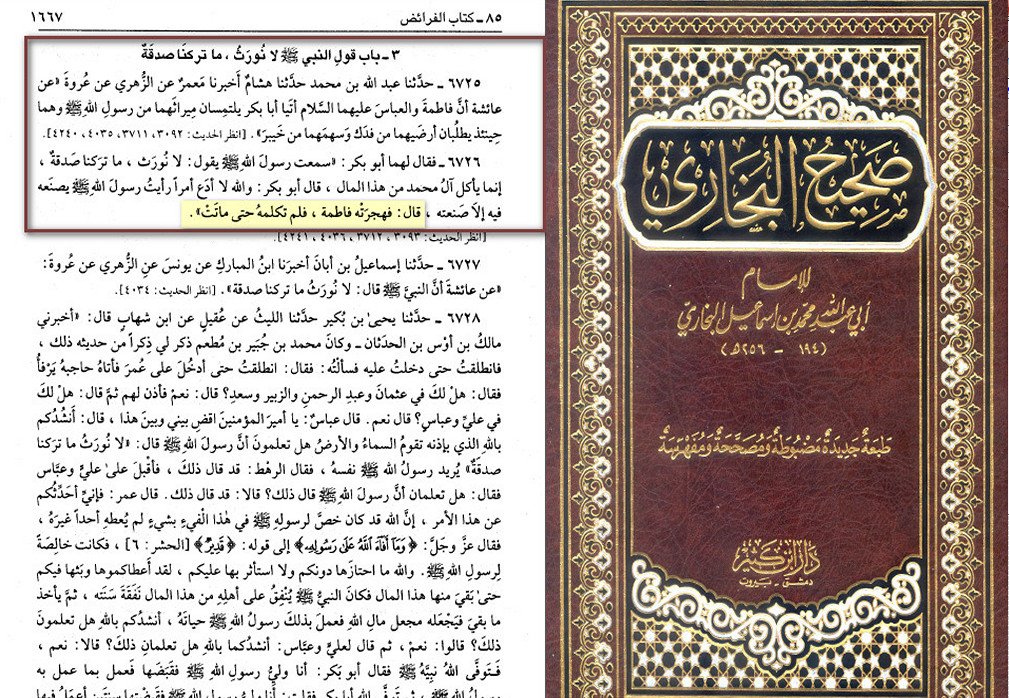 ٨٥ ـ كتاب الفرائض
١٦٦٧
٣ ـ باب قولِ النبي ﷺ لا نُورَثُ ، ما تركنَا صدقَةٌ
٦٧٢٥ ـ حدَّثنا عبد الله بن محمد حدَّثنا هشامٌ أَخبرنا مَعمرٌ عن الزُّهري عن عُروةَ «عن
عائشة أنَّ فاطمةَ والعباسَ عليهما السَّلام أتيَا أبا بكر يلتمِسان مِيراثهما من رسولِ اللهِ ﷺ وهما
حِينئذ يطلُبان أرضَيهما من فَدَك وَسهمَهما من خَيبرَ» . [انظر الحديث: ٣٠٩٢، ٣٧١١، ٤٠٣٥، ٤٢٤٠].
٦٧٢٦ ـ فقال لهما أبو بكر: «سمعت رسولَ اللهِ ﷺ يقول: لا نُورَث ، ما ترَكنا صدقةٌ ،
إنما يأكل آلُ محمد من هذا المال ، قال أبو بكر: والله لا أدَع أمراً رأيتُ رسولَ اللهِ ﷺ يصنَعه
فيه إلاّ صَنعته ، قال: فهجرَتْه فاطمة ، فلم تكلمهُ حتى ماتَتْ» .
[انظر الحديث: ٣٠٩٣ ، ٣٧١٢ ، ٤٠٣٦ ، ٤٢٤١].
٦٧٢٧ ـ حدَّثنا إسماعيلُ بن أبانَ أخبرَنا ابنُ المباركِ عن يونسَ عنِ الزُّهري عن عُروةَ:
«عن عائشةَ أنَّ النبيَّ ﷺ قال: لا نُورَثُ ما تركنا صدقة» . [انظر الحديث: ٤٠٣٤].
٦٧٢٨ ـ حدَّثنا يحيىٰ بن بُكير حدَّثنا الليثُ عن عُقيلٍ عن ابن شهابٍ قال: «أخبرني
مالكُ بن أوْس بن الحدَثان ـ وكانَ محمد بن جُبَير بن مُطعم ذكر لي ذِكراً من حديثه ذلك ،
فانطلقتُ حتى دخلتُ عليه فسألتُه: فقال: انطلقتُ حتى أدخُلَ على عُمرَ فأتاهُ حاجبهُ يَرْفأُ
فقال: هلْ لكَ في عثمانَ وعبدِ الرحمنِ والزبير وسعدٍ؟ قال: نعم فأذن لهم ثمَّ قال: هل لكَ
في عليٍّ وعباسٍ؟ قال نعم. قال عباسٌ: يا أميرَ المؤمنينَ اقضِ بيني وبينَ هذا ، قال: أنشُدُكم
بالله الذي بإذنه تقومُ السماءُ والأرضُ هل تعلمونَ أنَّ رسولَ اللهِ ﷺ قال: «لا نُورَثُ ما تركنا
صدقةٌ» يُريد رسولُ اللهُ ﷺ نفسهُ ، فقال الرهْط: قد قال ذلكَ ، فأقْبلَ علىٰ عليٍّ وعبَّاس
فقال: هل تعلمان أنَّ رسولَ اللهِ ﷺ قال ذلكَ؟ قالا: قد قال ذلك. قال عمر: فإنِّي أحدِّثُكم
عن هذا الأمر ، إنَّ الله قد كان خصَّ لرسولهِ ﷺ في هٰذا الْفيءِ بشيءٍ لم يُعطهِ أحداً غيرَهُ ،
فقال عزَّ وجلَّ: ﴿وَمَآ أَفَآءَ ٱللَّهُ عَلَىٰ رَسُولِهِۦ﴾ إلى قوله: ﴿قَدِيرٌ﴾ [الحشر: ٦] ، فكانت خالِصةً
لِرسولِ اللهِ ﷺ. والله ما احتازَها دونكم ولا استأثر بها عليكم ، لقد أعطاكموها وبَثَّها فيكم
حتىٰ بَقيَ منها هذا المال فكانَ النبيُّ ﷺ يُنْفِقُ على أهلِهِ من هذا المال نَفَقَةَ سَنَته ، ثمَّ يأخذ
ما بقيَ فيَجْعَله مجعل مالِ اللهِ فعملَ بذلكَ رسولُ اللهِ ﷺ حياتَهُ ، أنشدُكم باللهِ هل تعلمونَ
ذلكَ؟ قالوا: نعمْ ، ثم قال لعليٍّ وعبَّاس: أنشدُكما باللهِ هل تعلمانِ ذلكَ؟ قالا: نعم ،
فَتَوفَّى اللهُ نبيَّهُ ﷺ فقال أبو بَكر: أنا وليُّ رسولِ اللهِ ﷺ فقبَضَها فعمل بما عمل به
رسولُ اللهِ ﷺ ، ثم توفَّى اللهُ أبا بكر فقلت: أنا وليُّ وليِّ رسولِ اللهِ ﷺ فقبضتها سنتَين أعمَلُ فيها
صَحِيحُ البُخَارِي
لِلإمَام
أبي عَبدِ الله محمّد بن إسمَاعيل البُخَاريّ
(١٩٤ - ٢٥٦هـ)
طَبعَةٌ جَدِيدَةٌ مَضْبُوطَةٌ وَمُصَحَّحَةٌ وَمُفَهْرَسَةٌ
دَارُ ابن كَثير
دمشق - بيروت